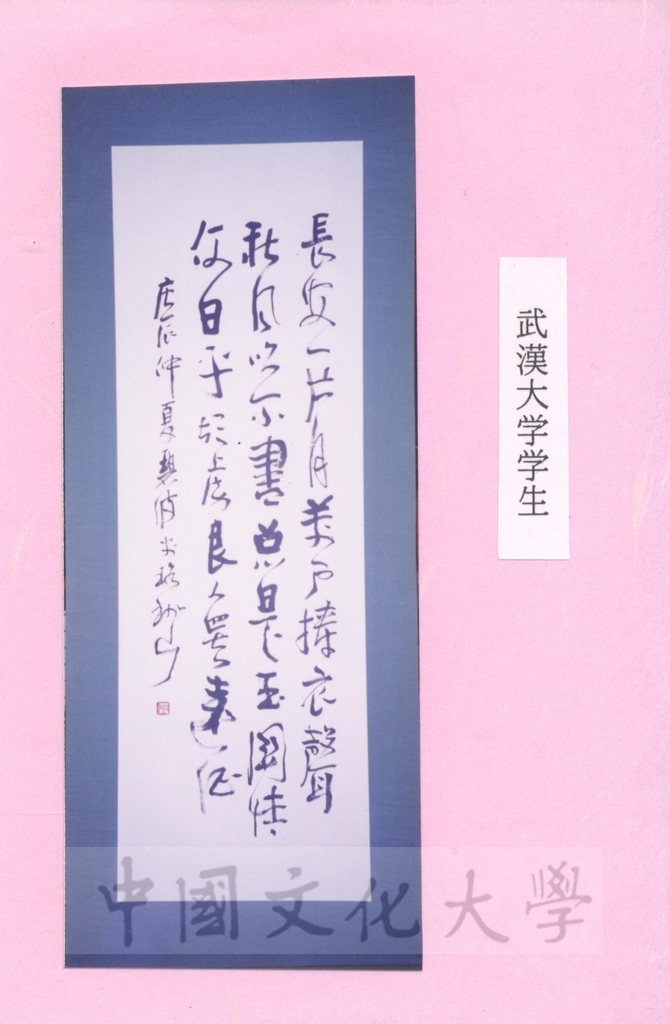 武漢大学学生
長安一片月萬戶擣衣聲
秋风吹不盡總是玉關情
何日平胡虜良人罷遠征
庚辰仲夏碧波山
中國文化大學